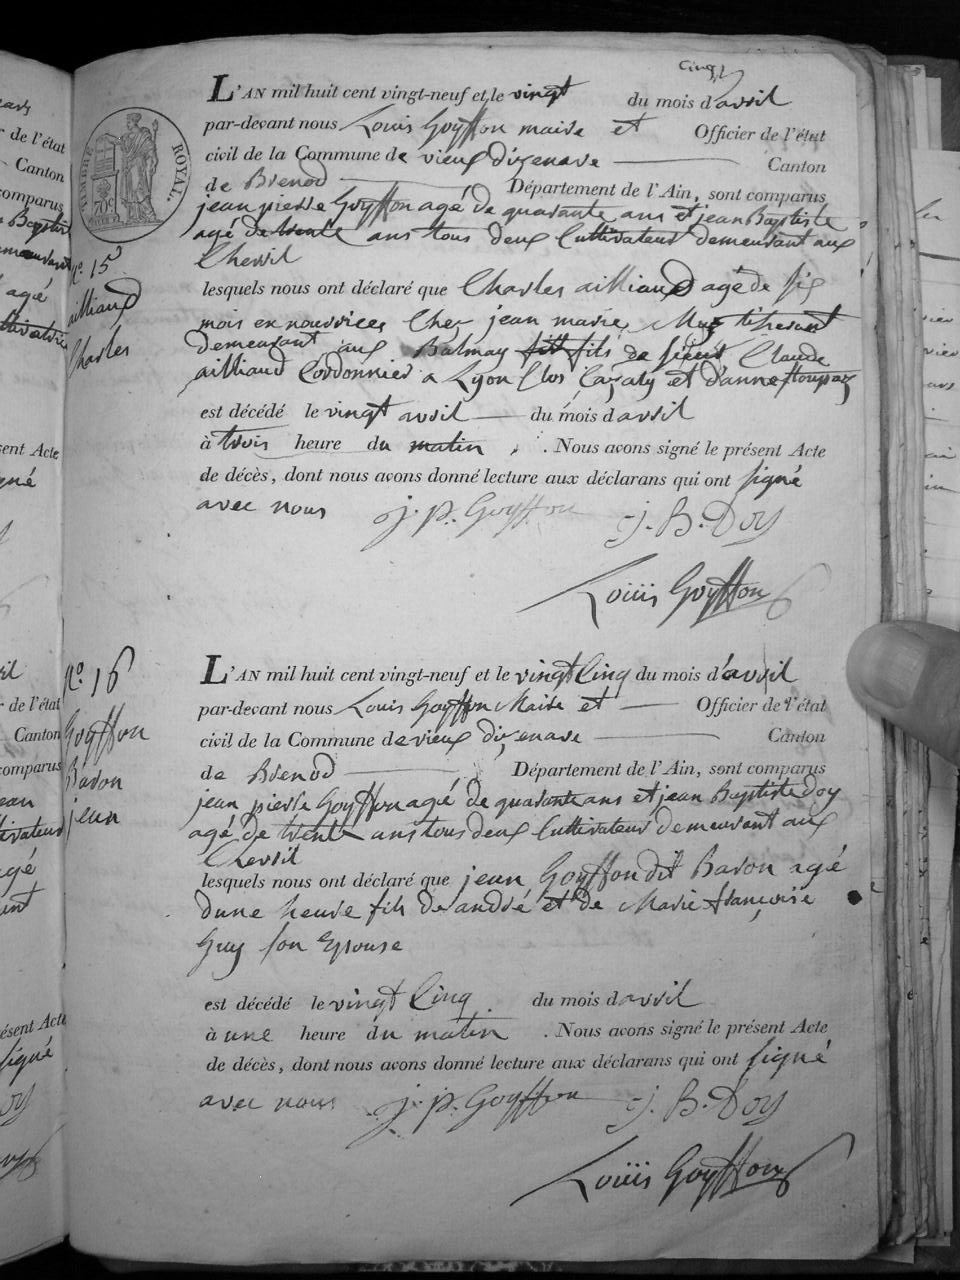 cinq
L'AN mil huit cent vingt-neuf et le vingt du mois d'avril
par-devant nous Louis Goyffon maire et Officier de l'état
civil de la Commune de vieux dizenave Canton
de Brenod Département de l'Ain, sont comparus
jean pierre Goyffon agé de quarante ans et jean Baptiste
agé de trente ans tous deux Cultivateur demeurant aux
Chevril
N.o 15
ailliaud
Charles
lesquels nous ont déclaré que Charles ailliaud agé de six
mois en nourrice Chez jean marie
demeurant aux Balmay fils de sieur Claude
ailliaud Cordonnier a Lyon Clos Cazaty et d'anne
est décédé le vingt avril du mois d'avril
à trois heure du matin . Nous avons signé le présent Acte
de décès, dont nous avons donné lecture aux déclarans qui ont signé
avec nous j. p. Goyffon j. B. Doy
Louiis Goyffon
N.o 16
Goyffon
Baron
jean
L'AN mil huit cent vingt-neuf et le vingt Cinq du mois d'avril
par-devant nous Louis Goyffon Maire et Officier de l'état
civil de la Commune de vieux dizenave Canton
de Brenod Département de l'Ain, sont comparus
jean pierre Goyffon agé de quarante ans et jean Baptiste Doy
agé de trente ans tous deux Cultivateur demeurant aux
Chevril
lesquels nous ont déclaré que jean Goyffon dit Baron agé
dune heure fils de andré et de Marie françoise
Guy son Epouse
est décédé le vingt Cinq du mois d'avril
à une heure du matin . Nous avons signé le présent Acte
de décès, dont nous avons donné lecture aux déclarans qui ont signé
avec nous j. p. Goyffon j. B. Doy
Louiis Goyffon
TIMBRE ROYAL.
70c